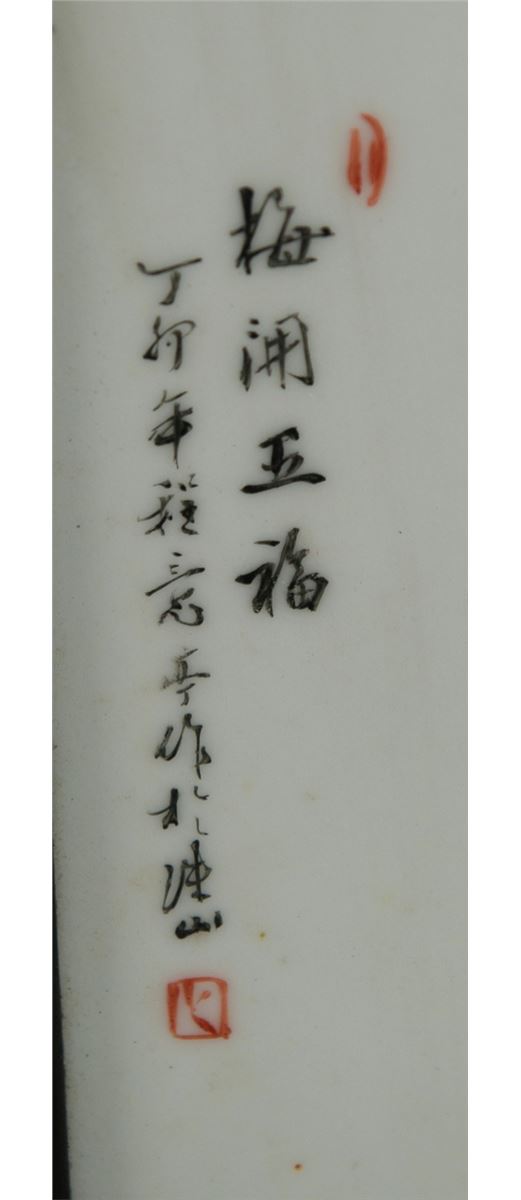 梅開五福
丁卯年程意亭作於珠山